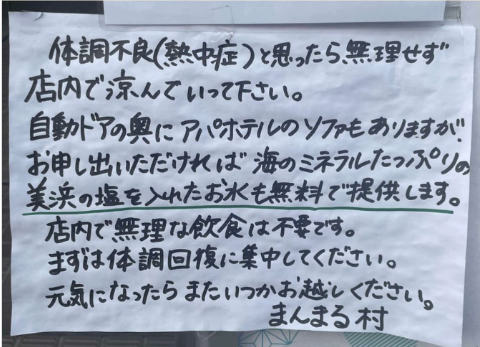 体調不良(熱中症)と思ったら無理せず
店内で涼んでいって下さい。
自動ドアの奥にアパホテルのソファもありますが
お申し出いただければ海のミネラルたっぷりの
美浜の塩を入れたお水も無料で提供します。
店内で無理な飲食は不要です。
まずは体調回復に集中してください。
元気になったらまたいつかお越しください。
まんまる村